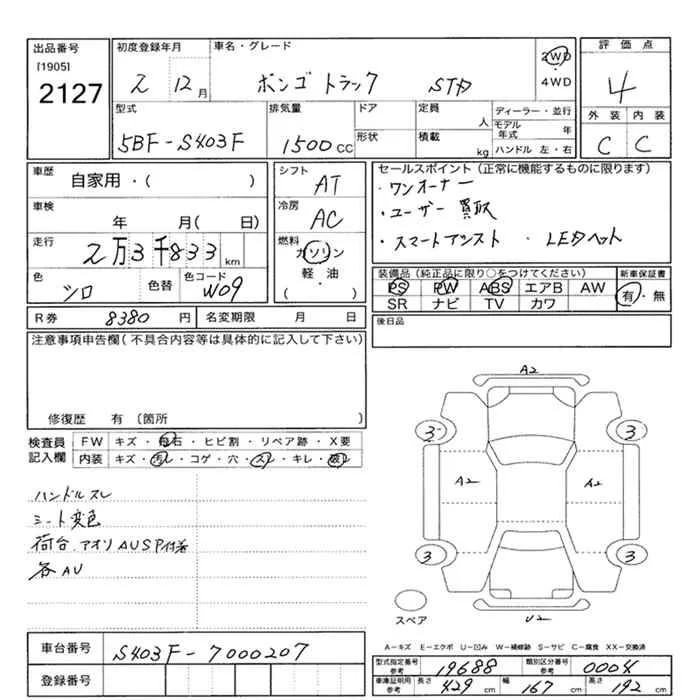 出品番号 初度登録年月 車名・グレード 評価点
[1905]
2127
2 12月 ボンゴ トラック STD 2WD・4WD 4
型式 排気量 ドア 定員 人 ディーラー・並行 外装 内装
5BF-S403F 1500CC 形状 積載 kg モデル年式 年 C C
ハンドル 左・右
車歴 自家用・( )
シフト AT
セールスポイント(正常に機能するものに限ります)
・ワンオーナー
・ユーザー買取
・スマートアシスト ・LEDヘット
車検 年 月( 日)
冷房 AC
走行 2万3千833km
燃料 ガソリン 軽・油 ( ・ )
色 シロ 色替 色コード W09
装備品(純正品に限り○をつけてください) 新車保証書
PS PW ABS エアB AW 有・無
SR ナビ TV カワ
R券 8380円 名変期限 月 日
後日品
注意事項申告欄(不具合内容等は具体的に記入して下さい)
修復歴 有〔箇所 〕
検査員記入欄 FW キズ・飛石・ヒビ割・リペア跡・X要
内装 キズ・汚レ・コゲ・穴・スレ・キレ・破レ
ハンドルスレ
シート変色
荷台、アオリAUSP付着
各AU
A2
3 3
A2 A2
3 3
スペア U2
A-キズ E-エクボ U-凹み W-補修跡 S-サビ C-腐食 XX-交換済
車台番号 S403F-7000207
型式指定番号 参考 19688 類別区分番号 参考 0004
登録番号
車庫証明用 参考 長さ 429 cm 幅 167 cm 高さ 192 cm